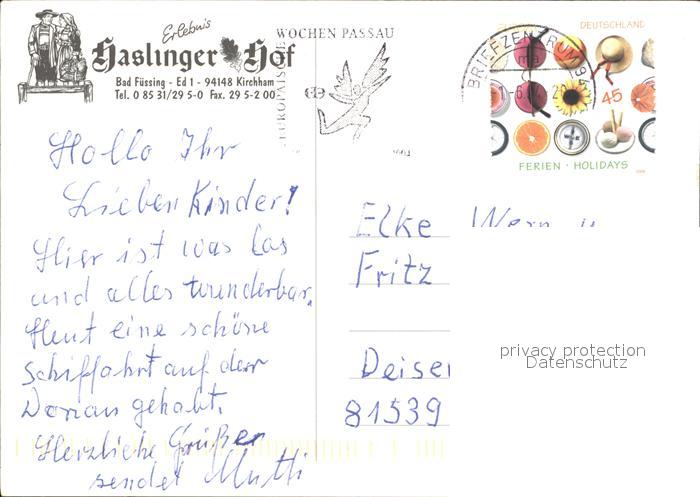 Erlebnis
Haslinger Hof
Bad Füssing - Ed 1 - 94148 Kirchham
Tel. 0 85 31/29 5-0 Fax. 29 5-2 00
EUROPÄISCHE
WOCHEN PASSAU
BRIEFZENTRUM 94
DEUTSCHLAND
45
FERIEN · HOLIDAYS
Hallo Ihr
Lieben Kinder!
Hier ist was los
und alles wunderbar.
Heut eine schöne
Schiffahrt auf der
Donau gehabt.
Herzliche Grüßen
sendet Mutti
Elke
Fritz
Deisen
81539
privacy protection
Datenschutz